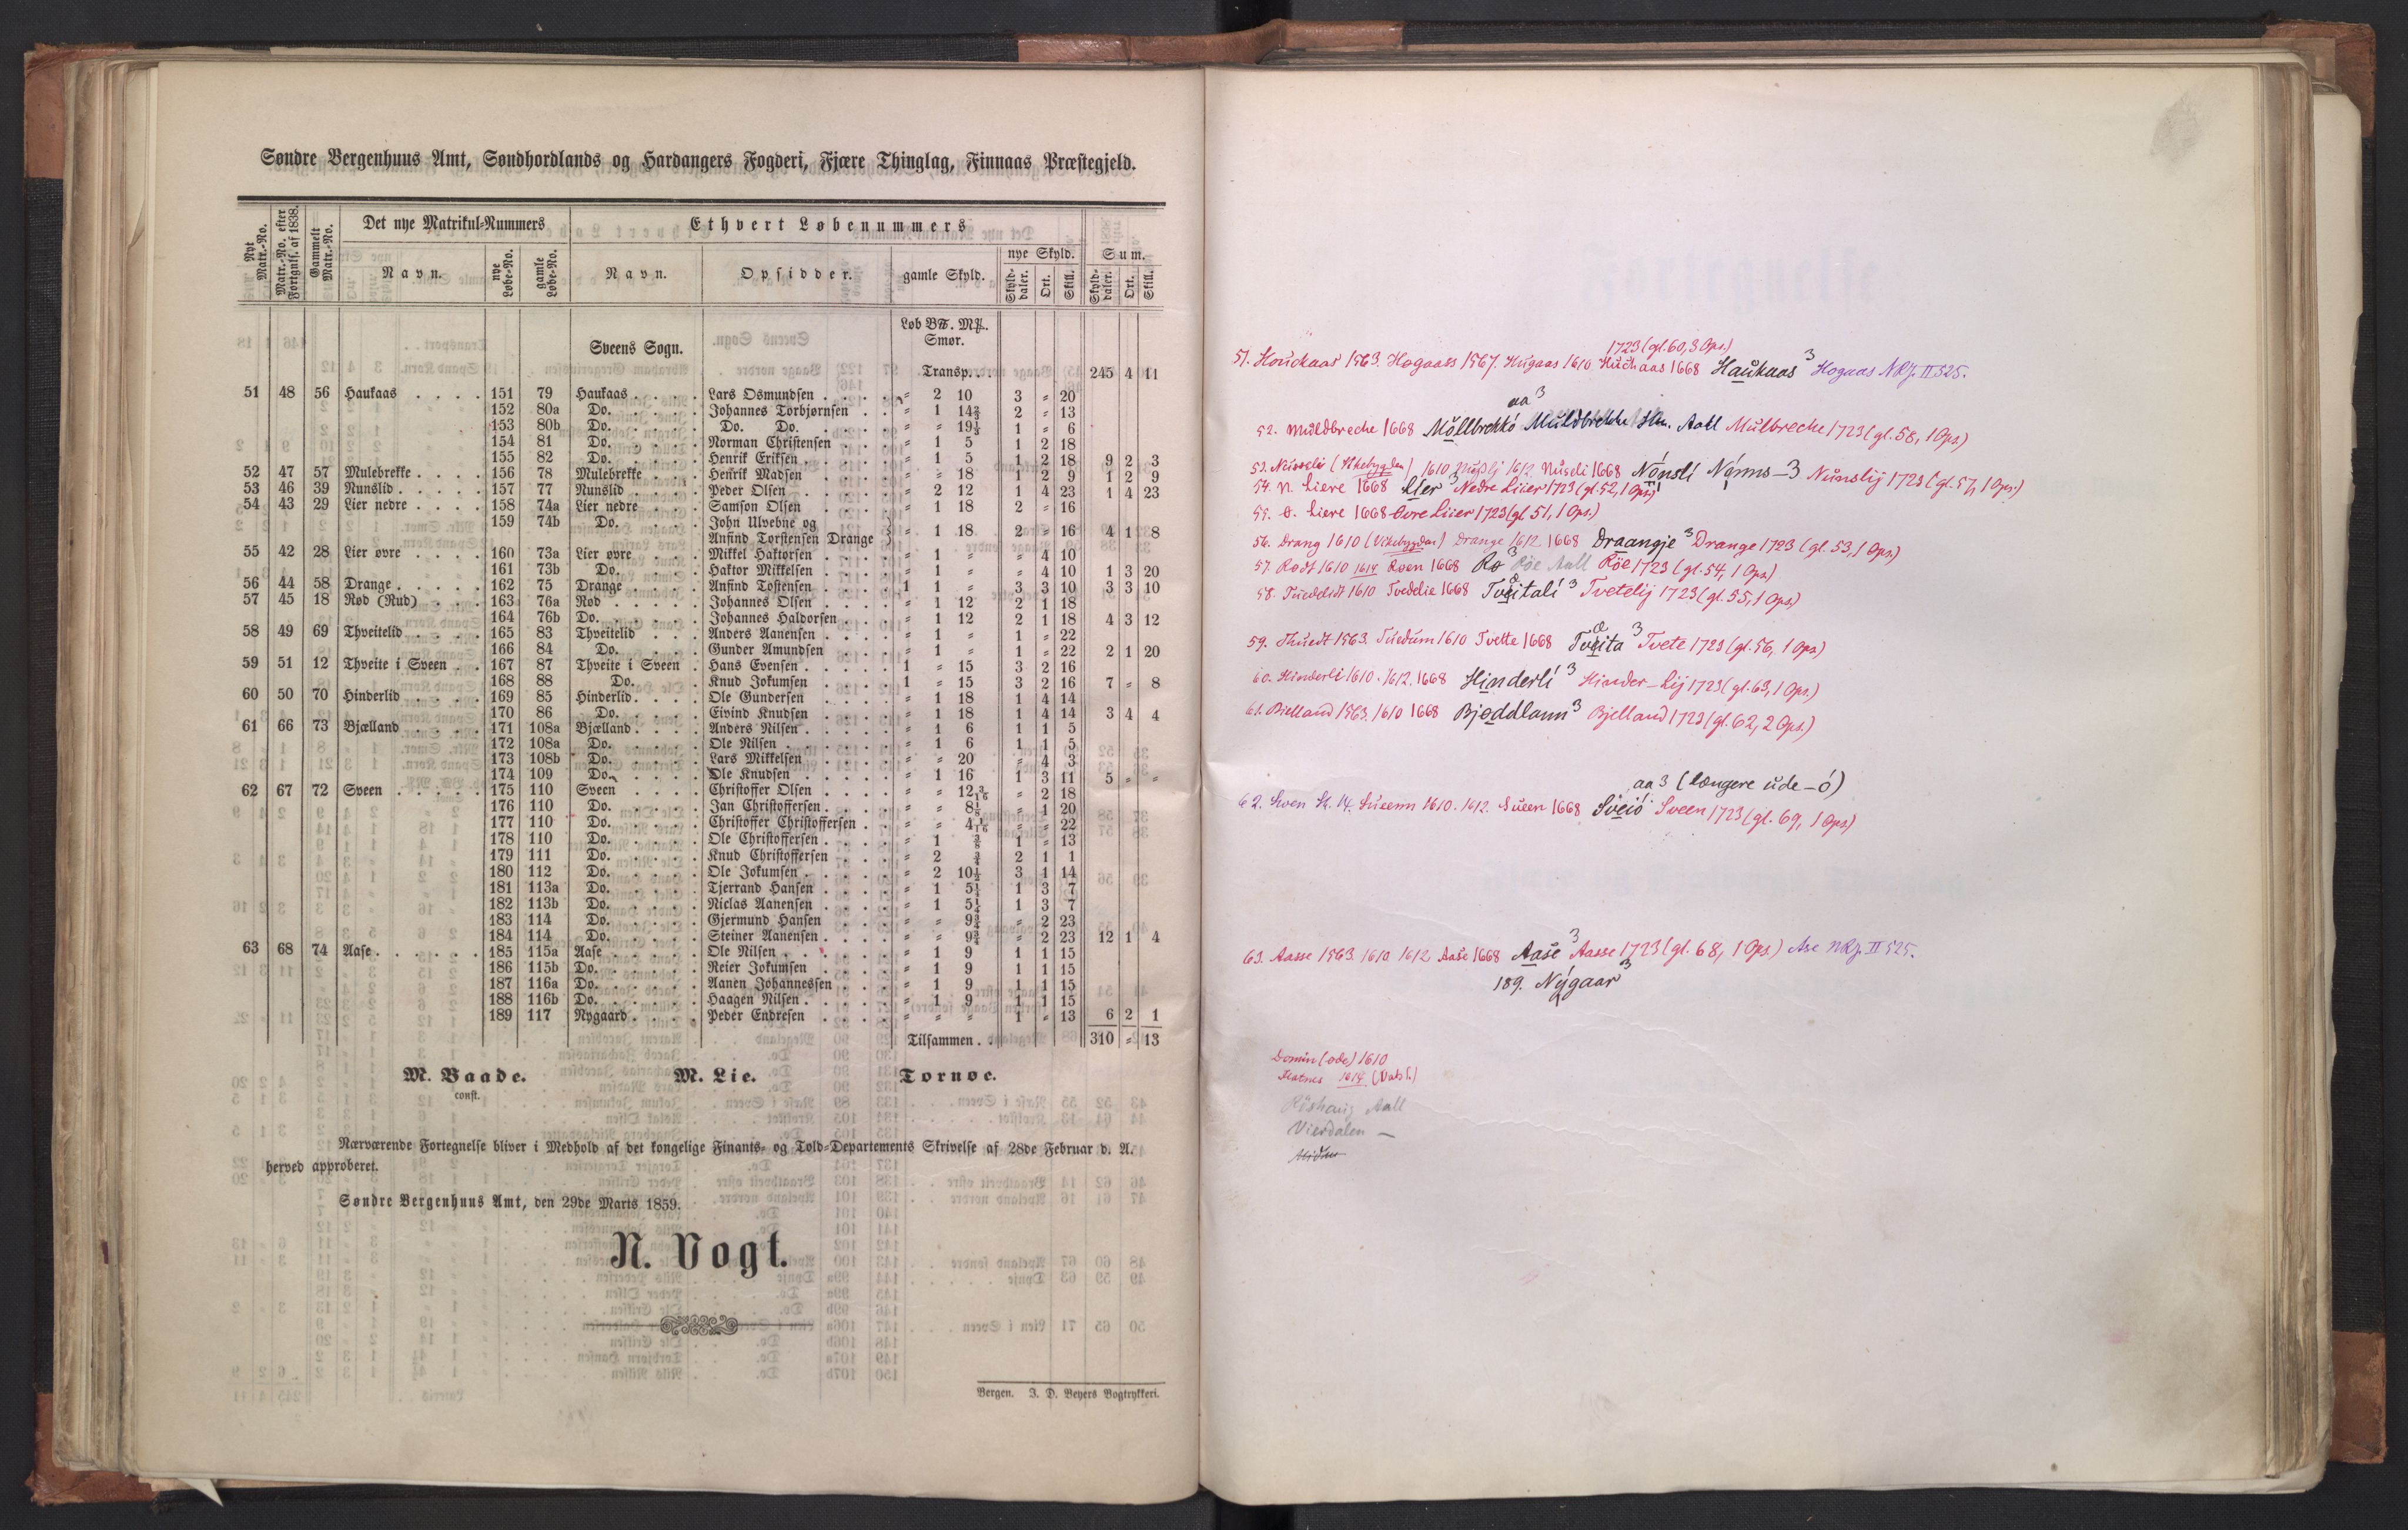 Søndre Bergenhuus Amt, Søndhordlands og Hardangers Fogderi, Fjære Thinglag, Finnaas Præstegjeld.
Nyt Matr.-No. Matr.-No. efter Fortgnis. af 1838. Gammelt Matr.-No. Det nye Matrikul-Nummers Ethvert Løbenummers
nye Skyld. Sum.
Navn. nye Løbe-No. gamle Løbe-No. Navn. Opsidder. gamle Skyld. Skyld-daler. Ort. Skill. Skyld-daler. Ort. Skill.
Løb B℔. M℔.
Sveens Sogn. Smør.
Transp. . . 245 4 11
51 48 56 Haukaas . . . . 151 79 Haukaas . . . . Lars Osmundsen . . . = 2 10 3 = 20
152 80a Do. . . . . Johannes Torbjørnsen . . = 1 14⅔ 2 = 13
153 80b Do. . . . . Do. Do. . . . = = 19⅓ 1 = 6
154 81 Do. . . . . Norman Christensen . . . = 1 5 1 2 18
155 82 Do. . . . . Henrik Eriksen . . . . = 1 5 1 2 18 9 2 3
52 47 57 Mulebrekke . . . . 156 78 Mulebrekke . . . Henrik Madsen . . . . = = 18 1 2 9 1 2 9
53 46 39 Nunslid . . . . . 157 77 Nunslid . . . . Peder Olsen . . . . . = 2 12 1 4 23 1 4 23
54 43 29 Lier nedre . . . . 158 74a Lier nedre . . . Samson Olsen . . . . = 1 18 2 = 16
159 74b Do. . . . John Ulvebne og
Anfind Torstensen Drange } = 1 18 2 = 16 4 1 8
55 42 28 Lier øvre . . . . 160 73a Lier øvre . . . . Mikkel Haktorsen . . . . = 1 = = 4 10
161 73b Do. . . . . Haktor Mikkelsen . . . . = 1 = = 4 10 1 3 20
56 44 58 Drange . . . . . 162 75 Drange . . . . Anfind Tostensen . . . . 1 1 = 3 3 10 3 3 10
57 45 18 Rød (Rud) . . . 163 76a Rød . . . . . Johannes Olsen . . . . = 1 12 2 1 18
164 76b Do. . . . . . Johannes Haldorsen . . . = 1 12 2 1 18 4 3 12
58 49 69 Thveitelid . . . . 165 83 Thveitelid . . . Anders Aanensen . . . . = 1 = 1 = 22
166 84 Do. . . . . Gunder Amundsen . . . = 1 = 1 = 22 2 1 20
59 51 12 Thveite i Sveen . . 167 87 Thveite i Sveen . Hans Evensen . . . . . 1 = 15 3 2 16
168 88 Do. . . . Knud Jokumsen . . . . 1 = 15 3 2 16 7 = 8
60 50 70 Hinderlid . . . . 169 85 Hinderlid . . . . Ole Gundersen . . . . = 1 18 1 4 14
170 86 Do. . . . . Eivind Knudsen . . . . = 1 18 1 4 14 3 4 4
61 66 73 Bjælland . . . . 171 108a Bjælland . . . . Anders Nilsen . . . . . = 1 6 1 1 5
172 108a Do. . . . . Ole Nilsen . . . . . . = 1 6 1 1 5
173 108b Do. . . . . Lars Mikkelsen . . . . = = 20 = 4 3
174 109 Do. . . . . Ole Knudsen . . . . . = 1 16 1 3 11 5 = =
62 67 72 Sveen . . . . . 175 110 Sveen . . . . Christoffer Olsen . . . . = = 12 3/16 = 2 18
176 110 Do. . . . . Jan Christoffersen . . . . = = 8⅛ = 1 20
177 110 Do. . . . . Christoffer Christoffersen . . = = 4 1/16 = = 22
178 110 Do. . . . . Ole Christoffersen . . . . = 1 ⅜ 1 = 13
179 111 Do. . . . . Knud Christoffersen . . . = 2 ¾ 2 1 1
180 112 Do. . . . . Ole Jokumsen . . . . . = 2 10½ 3 1 14
181 113a Do. . . . . Tjerrand Hansen . . . . = 1 5¼ 1 3 7
182 113b Do. . . . . Nielas Aanensen . . . . = 1 5¼ 1 3 7
183 114 Do. . . . . Gjermund Hansen . . . = = 9¾ = 2 23
184 114 Do. . . . . Steiner Aanensen . . . . = = 9¾ = 2 23 12 1 4
63 68 74 Aase . . . . . . 185 115a Aase . . . . . Ole Nilsen . . . . . . = 1 9 1 1 15
186 115b Do. . . . . . Reier Jokumsen . . . . = 1 9 1 1 15
187 116a Do. . . . . . Aanen Johannessen . . . = 1 9 1 1 15
188 116b Do. . . . . . Haagen Nilsen . . . . . = 1 9 1 1 15
189 117 Nygaard . . . . Peder Endresen . . . . = = = 1 = 13 6 2 1
Tilsammen . . 310 = 13
M. Baade. M. Lie. Tornøe.
const.
Nærværende Fortegnelse bliver i Medhold af det kongelige Finants- og Told-Departements Skrivelse af 28de Februar d. A.
herved approberet.
Søndre Bergenhuus Amt, den 29de Marts 1859.
N. Vogt.
Bergen. J. D. Beyers Bogtrykkeri.
1723 (gl. 60, 3 Ops.)
51. Houckaas 1563. Hogaass 1567. Hugaas 1610. Huchaas 1668 Haukaas 3 Hogaas NRJ. II 525.
aa 3
52. Muldbreche 1668 Möllbrekkó Aall Mulbreche 1723 (gl. 58, 1 Ops.)
53. (Vikebygden) 1610 1612. Nuseli 1668 Nónsli 3 Nunslij 1723 (gl. 57, 1 Ops.)
54. N. Liere 1668 Lier 3 Nedre Liier 1723 (gl. 52, 1 Ops.)
55. O. Liere 1668 Øvre Liier 1723 (gl. 51, 1 Ops.)
56. Drang 1610 (Vikebygden) Drange 1612. 1668 Draangje 3 Drange 1723 (gl. 53, 1 Ops.)
57. Rødt 1610 1614 Roen 1668 Rø 3 Röe Aall Röe 1723 (gl. 54, 1 Ops.)
58. 1610 Tvedelie 1668 Tveitalí 3 Tvetelij 1723 (gl. 55, 1 Ops.)
59. Thuedt 1563. Tuedum 1610 Tvette 1668 Tveita 3 Tvete 1723 (gl. 56, 1 Ops.)
60. Hinderli 1610. 1612. 1668 Hinderlí 3 Hinder-Lij 1723 (gl. 63, 1 Ops.)
61. Bielland 1563. 1610 1668 Bjøddlann 3 Bjelland 1723 (gl. 62, 2 Ops.)
aa 3 (længere ude -ó)
62. Sven St. 14. Sueenn 1610. 1612. Sueen 1668 Sveió Sveen 1723 (gl. 69, 1 Ops.)
63. Aasse 1563. 1610 1612 Aase 1668 Aase 3 Aasse 1723 (gl. 68, 1 Ops.) Ase NRJ. II 525.
189. Nýgaar 3
Domin (øde) 1610
1614
Aall
Vierdalen —